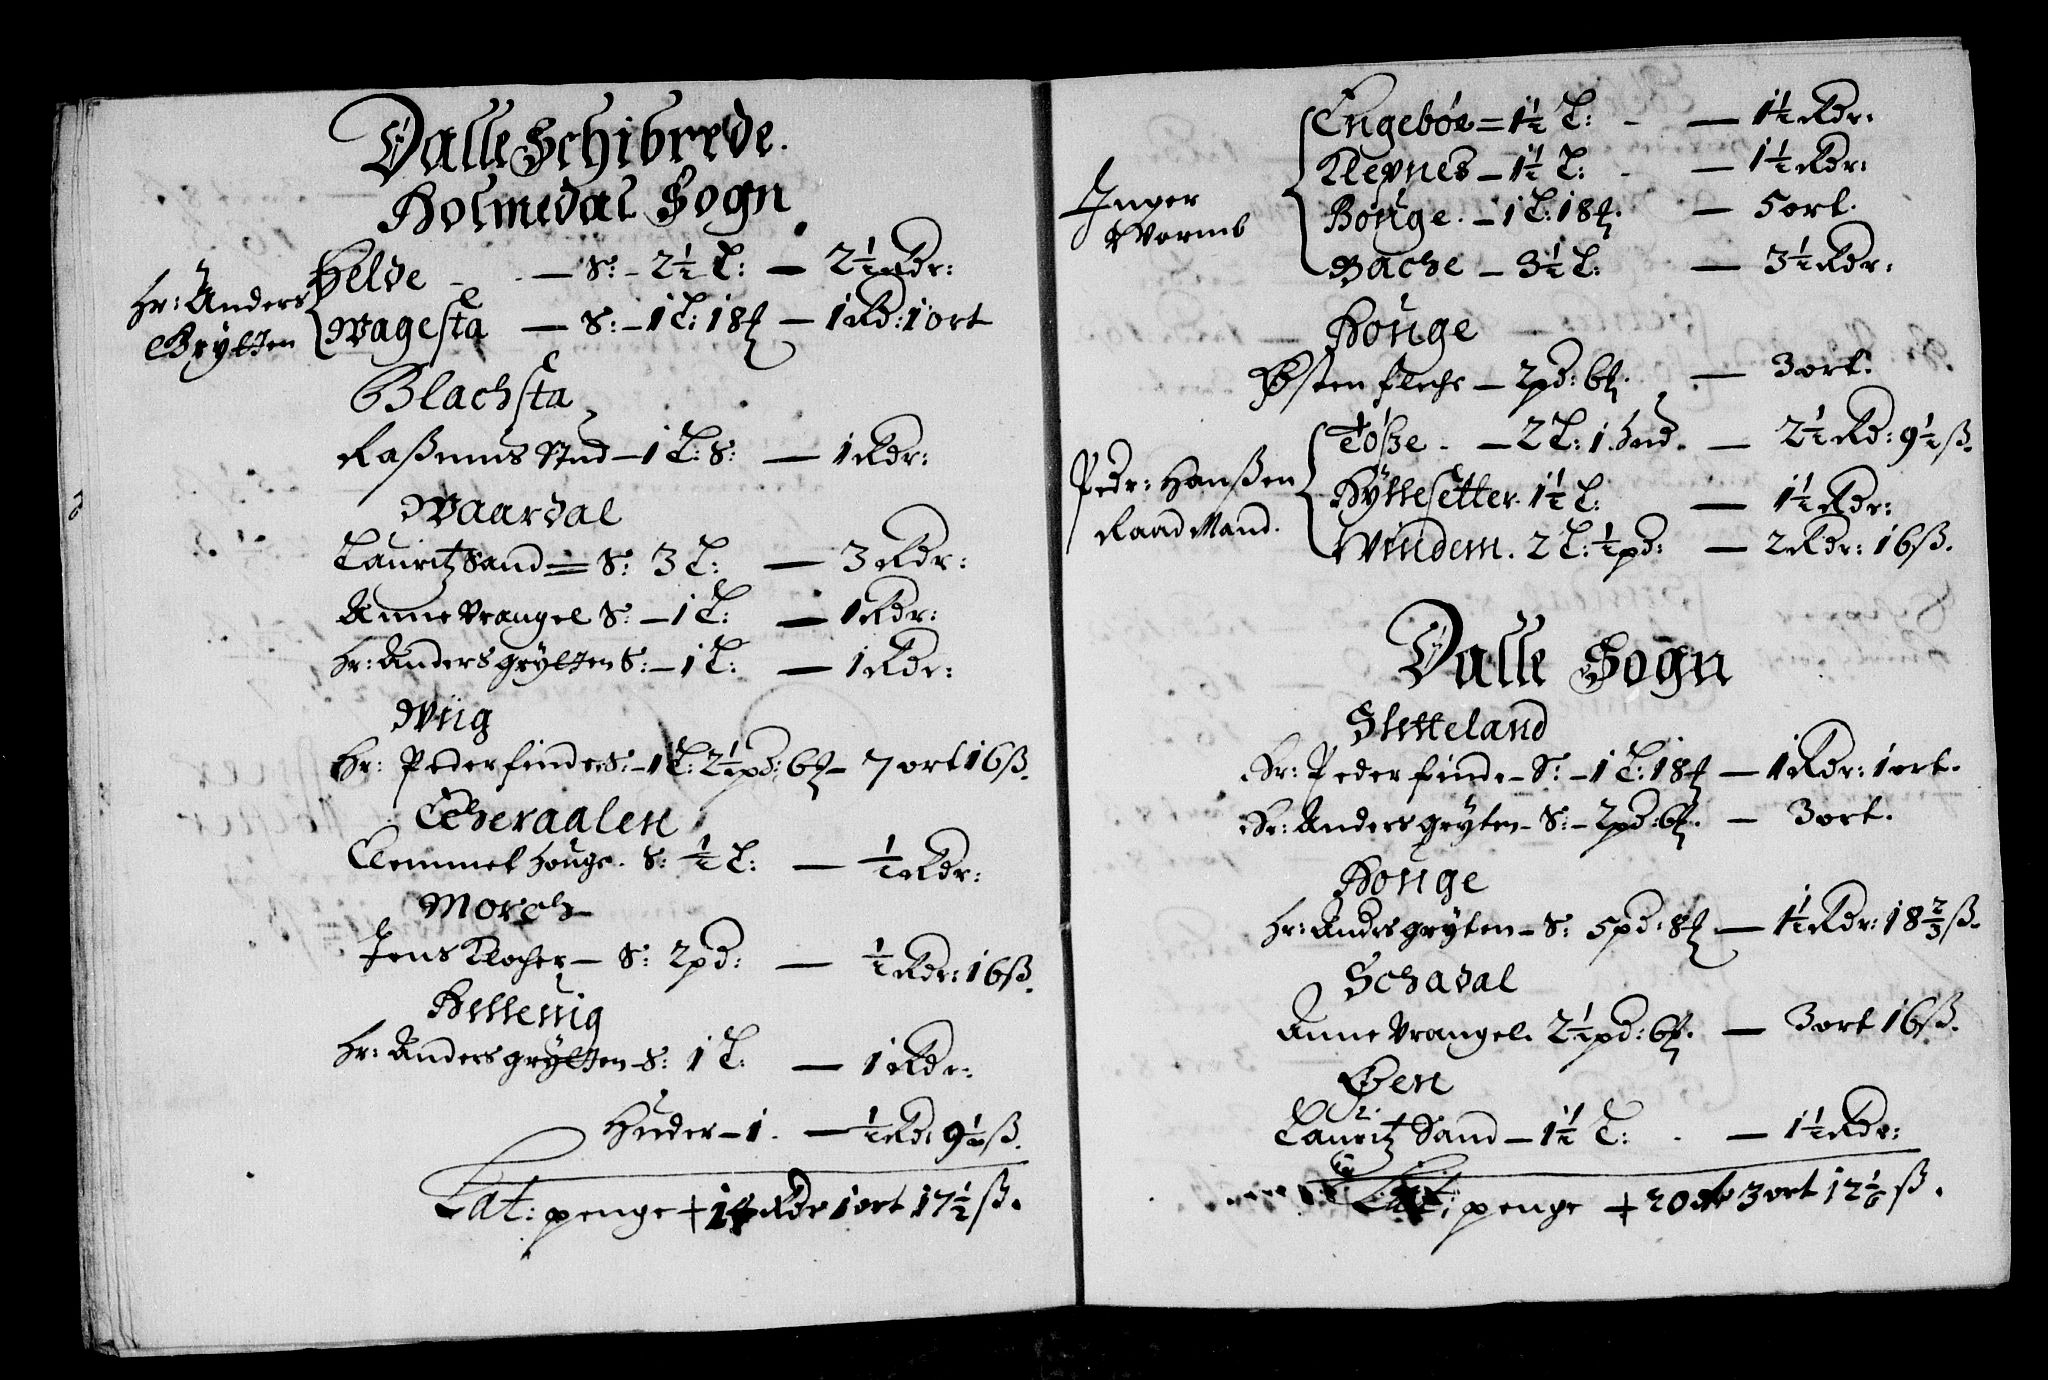 Dalle Schibrede.
Holmedal Sogn
Hr: Anders Grytten
Helde - - S: - 2½ L: - 2½ Rdr:
Wagesta - S: - 1 L: 18 ℔ - 1 Rd: 1 ort
Blachsta
Raßmus Stud - 1 L: S: - 1 Rdr:
Waardal
Lauritz Sand = S: 3 L: - 3 Rdr:
Anne Vrangel S: - 1 L: - 1 Rdr:
Hr: Anders grytten S: - 1 L: - 1 Rdr:
Wiig
Hr: Peder finde S: - 1 L: 2½ pd: 6 ℔ - 7 ort 16 ß.
Clemmet Houge. S: ½ L: - ½ Rdr:
Morch
Jens Klocher - S: 2 pd: - ½ Rdr: 16 ß.
Hellevig
Hr: Anders grytten - S: 1 L: - 1 Rdr:
Huder - 1. - ½ Rd: 9½ ß.
Lat: penge + 14 Rdr 1 ort 17½ ß.
Inger Wormb
Engebøe = 1½ L: - - 1½ Rdr:
Klepnes - 1½ L: - - 1½ Rdr:
Bouge. - 1 L: 18 ℔. - 5 ort.
Bache - 3½ L: - 3½ Rdr:
Houge
Østen flechr - 2 pd: 6 ℔. - 3 ort.
Pedr: Hanßen
Raad Mand.
Tøße. - 2 L: 1 hud. - 2½ Rd: 9½ ß.
Hyllesetter 1½ L: - 1½ Rdr:
Windem. 2 L: ½ pd: - 2 Rdr: 16 ß.
Dalle Sogn
Sletteland
Hr: Peder finde - S: - 1 L: 18 ℔ - 1 Rdr: 1 ort.
Hr: Anders gryten - S: - 2 pd: 6 ℔. - 3 ort.
Houge
Hr: Anders gryten - S: 5 pd: 8 ℔ - 1½ Rdr: 18 2/3 ß.
Schadal
Anne Vrangel. 2½ pd: 6 ℔. - 3 ort 16 ß.
Øen
Lauritz Sand - 1½ L: - 1½ Rdr:
Lat: penge + 20 dr 3 ort 12 1/6 ß.